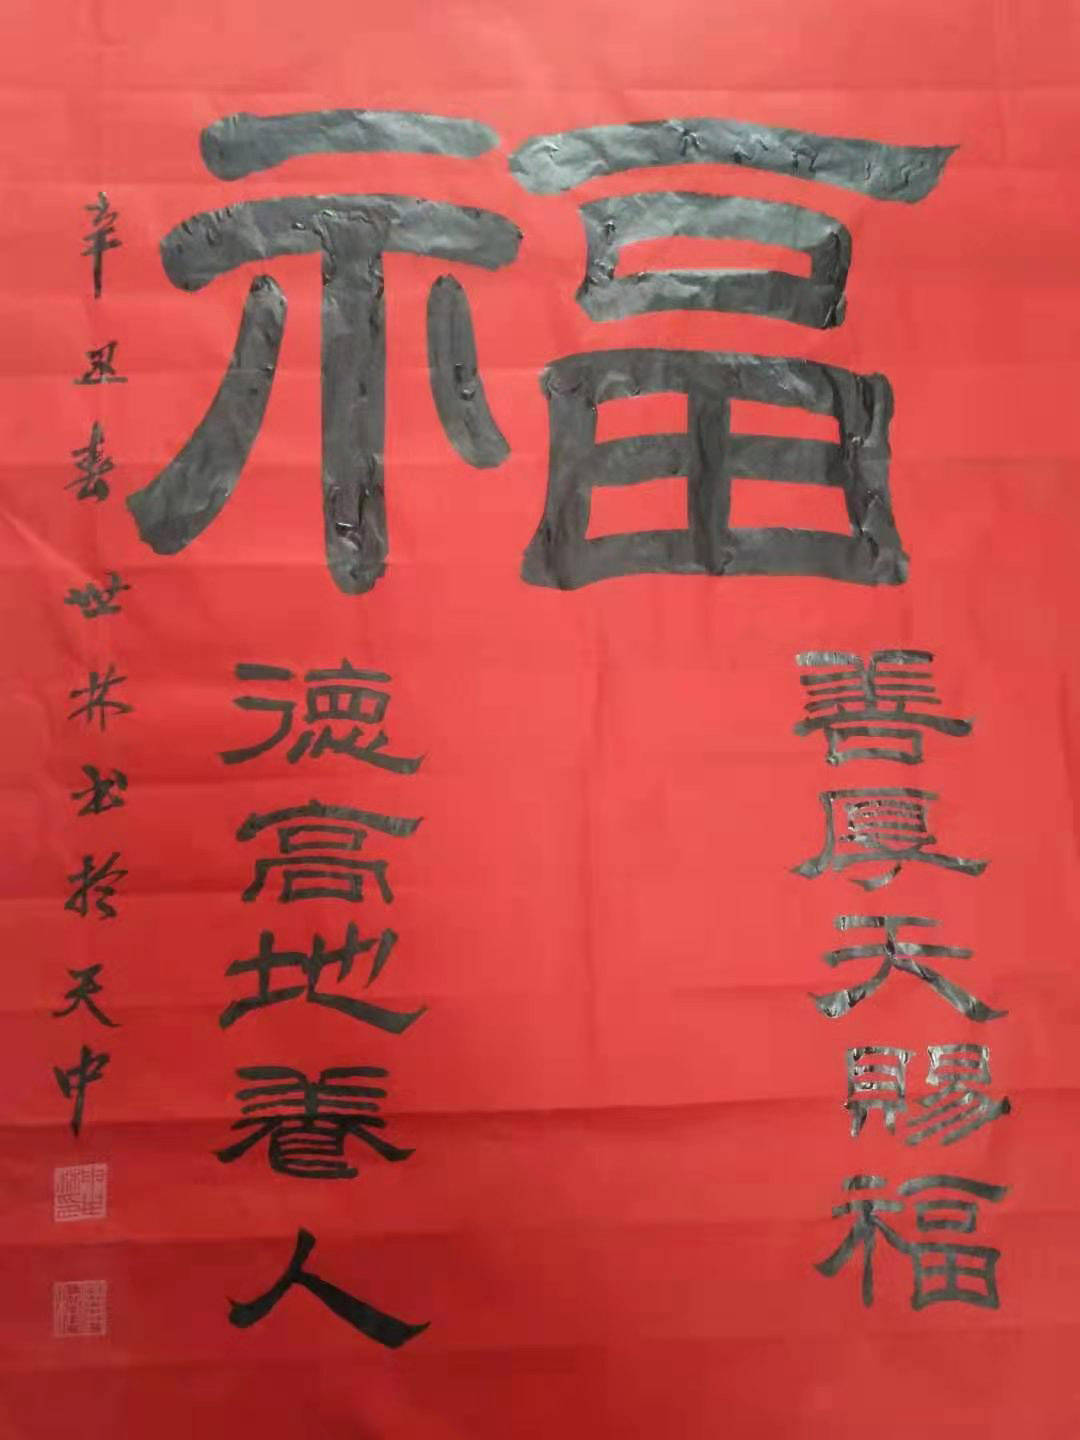 福
善厚天賜福
德高地養人
辛丑春世林书於天中